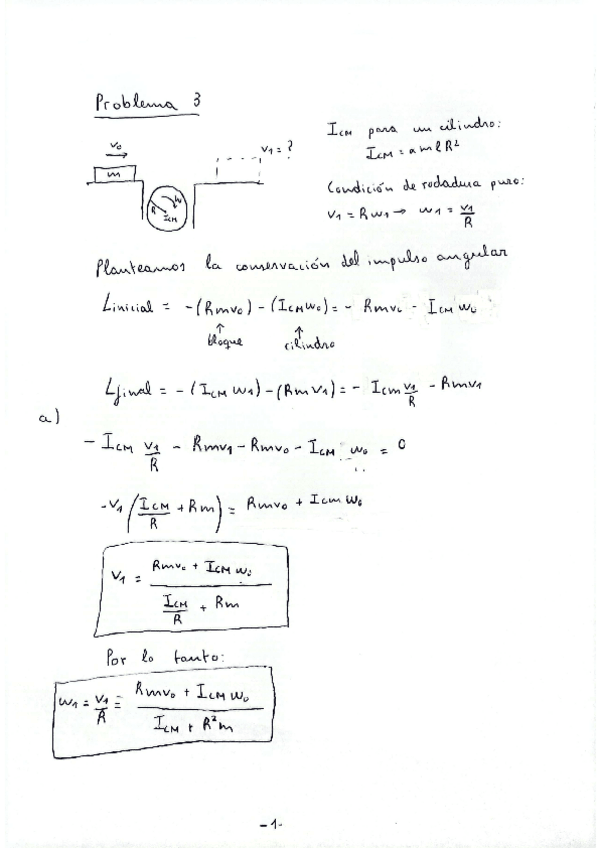 Problema 3
V₀
m
V₁ = ?
R
W
I_CM
I_CM para un cilindro:
I_CM = a m l R²
Condición de rodadura pura:
V₁ = R W₁ → W₁ = V₁/R
Planteamos la conservación del impulso angular
Linicial = -(Rmv₀) - (I_CM W₀) = - Rmv₀ - I_CM W₀
↑ ↑
bloque cilindro
Lfinal = -(I_CM W₁) - (RmV₁) = - I_CM V₁/R - RmV₁
a)
- I_CM V₁/R - RmV₁ - Rmv₀ - I_CM W₀ = 0
-V₁ (I_CM/R + Rm) = Rmv₀ + I_CM W₀
V₁ = (Rmv₀ + I_CM W₀) / (I_CM/R + Rm)
Por lo tanto:
W₁ = V₁/R = (Rmv₀ + I_CM W₀) / (I_CM + R²m)
-1-